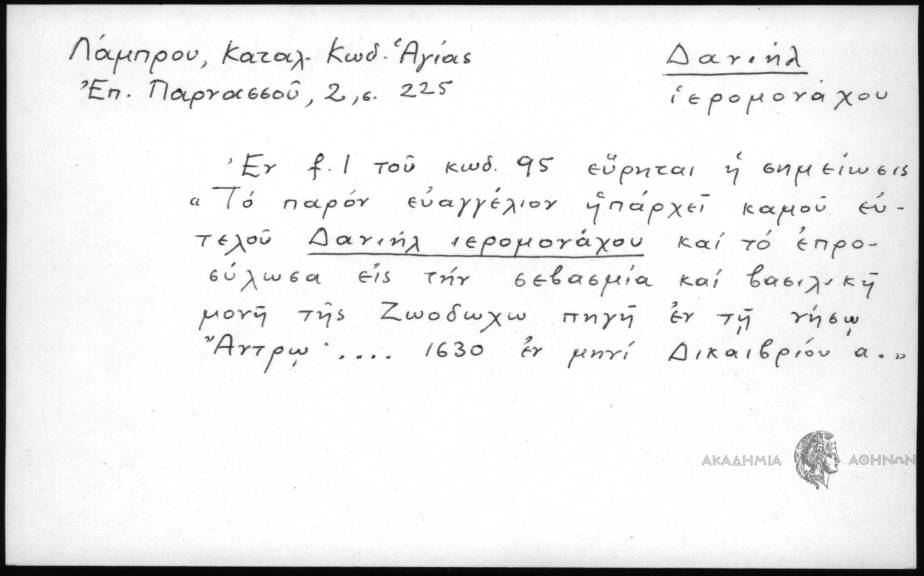 Λάμπρου, Καταλ. Κωδ. Ἁγίας
Ἐπ. Παρνασσοῦ, 2,ς. 225
Δανιήλ
ἱερομονάχου
Ἐν f. 1 τοῦ κωδ. 95 εὕρηται ἡ σημείωσις
«Τό παρόν εὐαγγέλιον ἡπάρχεῖ καμοῦ εὐ-
τελοῦ Δανιήλ ιερομονάχου καί τό ἐπρο-
σύλωσα εἰς τήν σεβασμία καί βασιλικῆ
μονῆ τῆς Ζωοδωχω πηγῆ ἐν τῇ νήσῳ
Ἄντρῳ .... 1630 ἐν μηνί Δικαιβρίου α.»
ΑΚΑΔΗΜΙΑ ΑΘΗΝΩΝ